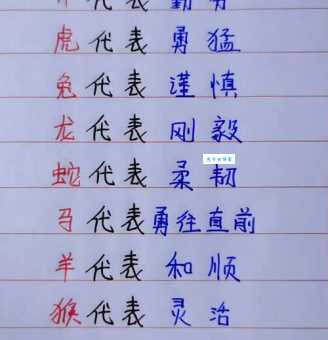 代表勤劳
虎代表勇猛
兔代表谨慎
龙代表刚毅
蛇代表柔韧
马代表勇往直前
羊代表和顺
猴代表灵活